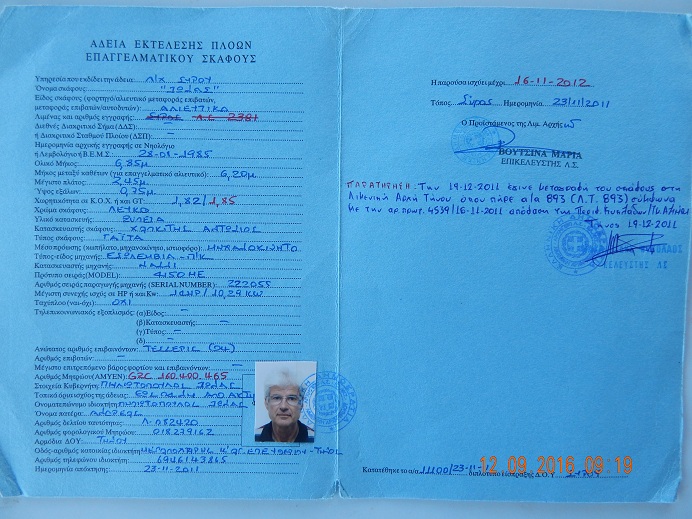 ΑΔΕΙΑ ΕΚΤΕΛΕΣΗΣ ΠΛΟΩΝ
ΕΠΑΓΓΕΛΜΑΤΙΚΟΥ ΣΚΑΦΟΥΣ
Υπηρεσία που εκδίδει την άδεια: Λ/Χ ΣΥΡΟΥ
Όνομα σκάφους:
Είδος σκάφους (φορτηγό/αλιευτικό μεταφοράς επιβατών,
μεταφοράς επιβατών/αυτοδυτών): ΑΛΙΕΥΤΙΚΟ
Λιμένας και αριθμός εγγραφής: ΣΥΡΟΣ Λ.Σ. 2381
Διεθνές Διακριτικό Σήμα (ΔΔΣ) —
ή Διακριτικό Σταθμού Πλοίου (ΔΣΠ): —
Ημερομηνία αρχικής εγγραφής σε Νηολόγιο
ή Λεμβολόγιο ή Β.Ε.Μ.Σ. 28-08-1985
Ολικό Μήκος: 6,85μ
Μήκος μεταξύ καθέτων (για επαγγελματικό αλιευτικό): 6,20μ
Μέγιστο πλάτος: 2,45μ
Ύψος εξάλων: 0,75μ
Χωρητικότητα σε Κ.Ο.Χ. ή GT: 1,82/1,85
Χρώμα σκάφους: ΛΕΥΚΟ
Υλικό κατασκευής: ΞΥΛΕΙΑ
Κατασκευαστής σκάφους: ΑΝΤΩΝΙΟΣ
Τύπος σκάφους: ΓΑΪΤΑ
Μέσο πρόωσης (κωπήλατο, μηχανοκίνητο, ιστιοφόρο): ΜΗΧΑΝΟΚΙΝΗΤΟ
Τύπος-είδος μηχανής: ΕΣΩΛΕΜΒΙΑ - Π/Κ
Κατασκευαστής μηχανής: NANNI
Πρότυπο σειράς (MODEL): 4150HE
Αριθμός σειράς παραγωγής μηχανής (SERIAL NUMBER): 222055
Μέγιστη συνεχής ισχύς σε HP ή και Kw: 14HP/10,29 KW
Ταχύπλοο (ναι-όχι): ΟΧΙ
Τηλεπικοινωνιακός εξοπλισμός: (α) Είδος: —
(β) Κατασκευαστής: —
(γ) Τύπος: —
(δ) —
Ανώτατος αριθμός επιβαινόντων: ΤΕΣΣΕΡΙΣ (04)
Αριθμός επιβατών: —
Μέγιστο επιτρεπόμενο βάρος φορτίου και επιβαινόντων: —
Αριθμός Μητρώου (ΑΜΥΕΝ): GRC 160.400.465
Στοιχεία Κυβερνήτη:
Τοπικά όρια ισχύος της άδειας: ΑΠΟ ΑΚΤΗ
Ονοματεπώνυμο ιδιοκτήτη:
Όνομα πατέρα: ΑΝΔΡΕΑΣ
Αριθμός δελτίου ταυτότητας: Λ-082420
Αριθμός φορολογικού Μητρώου: 018279162
Αρμόδια ΔΟΥ: ΤΗΝΟΥ
Οδός-αριθμός κατοικίας ιδιοκτήτη: ΤΗΝΟΣ
Αριθμός τηλεφώνου ιδιοκτήτη: 6946143865
Ημερομηνία απόκτησης: 23-11-2011
Η παρούσα ισχύει μέχρι 16-11-2012
Τόπος Σύρος Ημερομηνία 23/11/2011
Ο Προϊστάμενος της Λιμ. Αρχής
ΒΟΥΤΣΙΝΑ ΜΑΡΙΑ
ΕΠΙΚΕΛΕΥΣΤΗΣ Λ.Σ.
ΠΑΡΑΤΗΡΗΣΗ: Την 19-12-2011 έγινε μεταγραφή του σκάφους στη
Λιμενική Αρχή Τήνου όπου πήρε α/α 893 (Λ.Τ. 893) σύμφωνα
με την αρ. πρωτ. 4539/16-11-2011 απόφαση της
Τήνος 19-12-2011
ΚΕΛΕΥΣΤΗΣ ΛΣ
Κατατέθηκε το α/α 1100/23-11-11 διπλότυπο είσπραξης Δ.Ο.Υ
12.09.2016 09:19